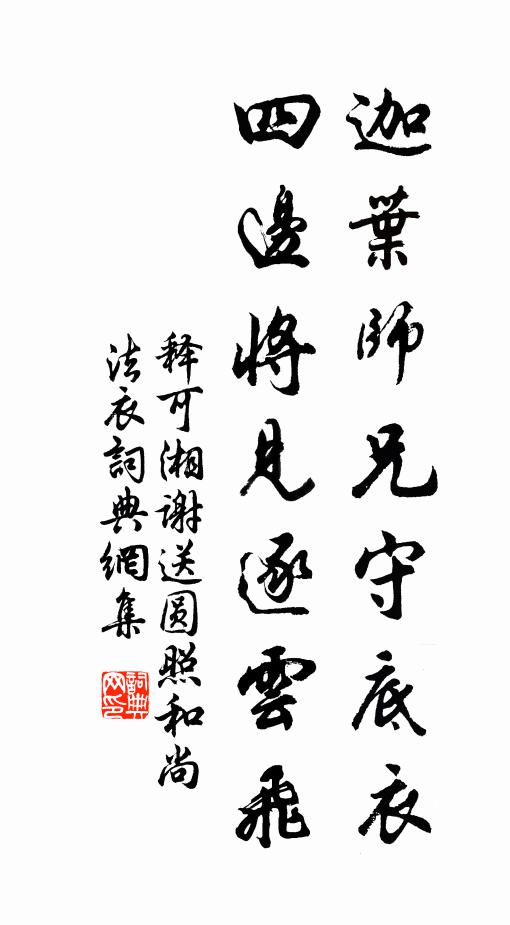 迦葉師兄守底衣
四邊將見逐雲飛
释可湘谢送圆照和尚
法衣詞典網集
詞典网印